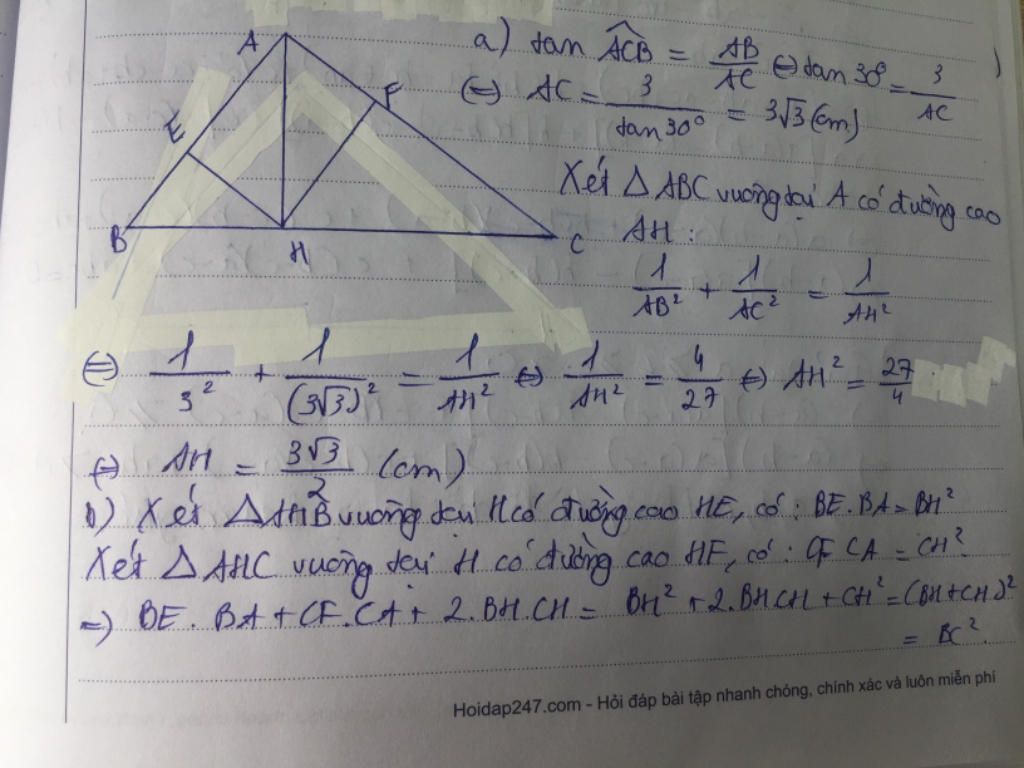 A
F
E
B
H
C
a) tan ACB = AB/AC ⇔ tan 30° = 3/AC
⇔ AC = 3/tan 30° = 3√3 (cm)
Xét △ ABC vuông tại A có đường cao
AH :
1/AB² + 1/AC² = 1/AH²
⇔ 1/3² + 1/(3√3)² = 1/AH² ⇔ 1/AH² = 4/27 ⇔ AH² = 27/4
⇔ AH = 3√3/2 (cm)
b) Xét △AHB vuông tại H có đường cao HE, có : BE.BA = BH²
Xét △ AHC vuông tại H có đường cao HF, có : CF.CA = CH².
=) BE. BA + CF.CA + 2.BH.CH = BH² + 2.BH.CH + CH² = (BH+CH)²
= BC².
Hoidap247.com - Hỏi đáp bài tập nhanh chóng, chính xác và luôn miễn phí